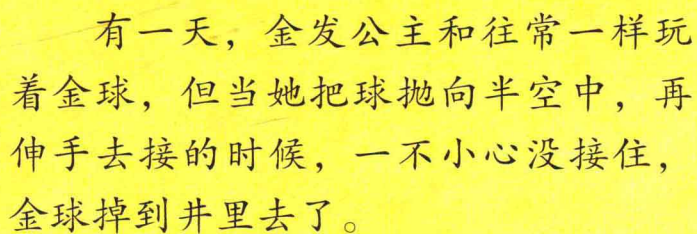 有一天，金发公主和往常一样玩
着金球，但当她把球抛向半空中，再
伸手去接的时候，一不小心没接住，
金球掉到井里去了。